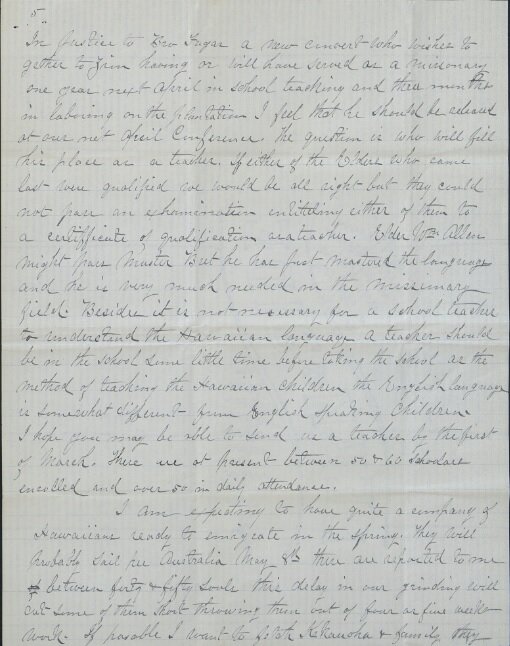 5
In Justice to Bro Fugar a new convert who wishes to
gether to Zion having or will have served as a missionary
one year next April in school teaching and three months
in laboring on the plantation I feel that he should be releaed
at our next April Conference. The question is who will fill
his place as a teacher. If either of the Elders who came
last were qualified we would be all right but they could
not pass an exhamination entitling either of them to
a certificate of qualification as a teacher. Elder Wm Allen
might pass muster But he has just mastered the language
and he is very much needed in the missionary
field. Beside it is not necessary for a school teacher
to understand the Hawaiian language a teacher should
be in the school some little time before taking the school as the
method of teaching the Hawaiian Children the English language
is somewhat different from English Speaking Children
I hope you may be able to send us a teacher by the first
of March. There are at present between 50 & 60 Scholars
enrolled and over 50 in daily attendance.
I am expecting to have quite a company of
Hawaiians ready to emigrate in the Spring. They will
probably Sail per Australia May 8th there are reported to me
between forty & fifty Souls this delay in our grinding will
cut some of them short throwing them out of four or five weeks
work. If posable I want to fetch Kekauoha & family they